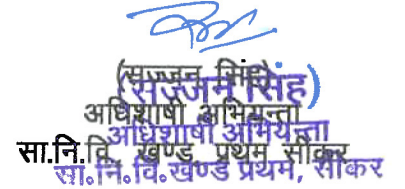 (सज्जन सिंह)
(सज्जन सिंह)
अधिशाषी अभियन्ता
अधिशाषी अभियन्ता
सा.नि.वि. खण्ड प्रथम सीकर
सा.नि.वि.खण्ड प्रथम, सीकर